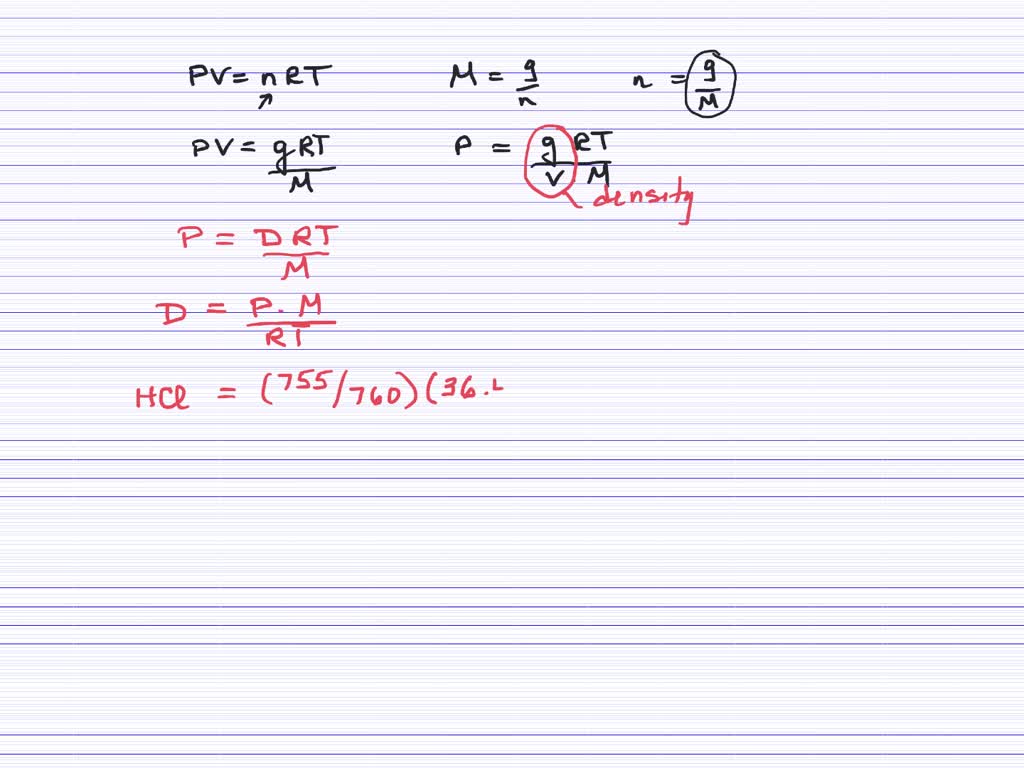 PV = nRT M = g/n n = g/M
PV = gRT/M P = g/V RT/M
density
P = DRT/M
D = P·M/RT
HCl = (755/760)(36.